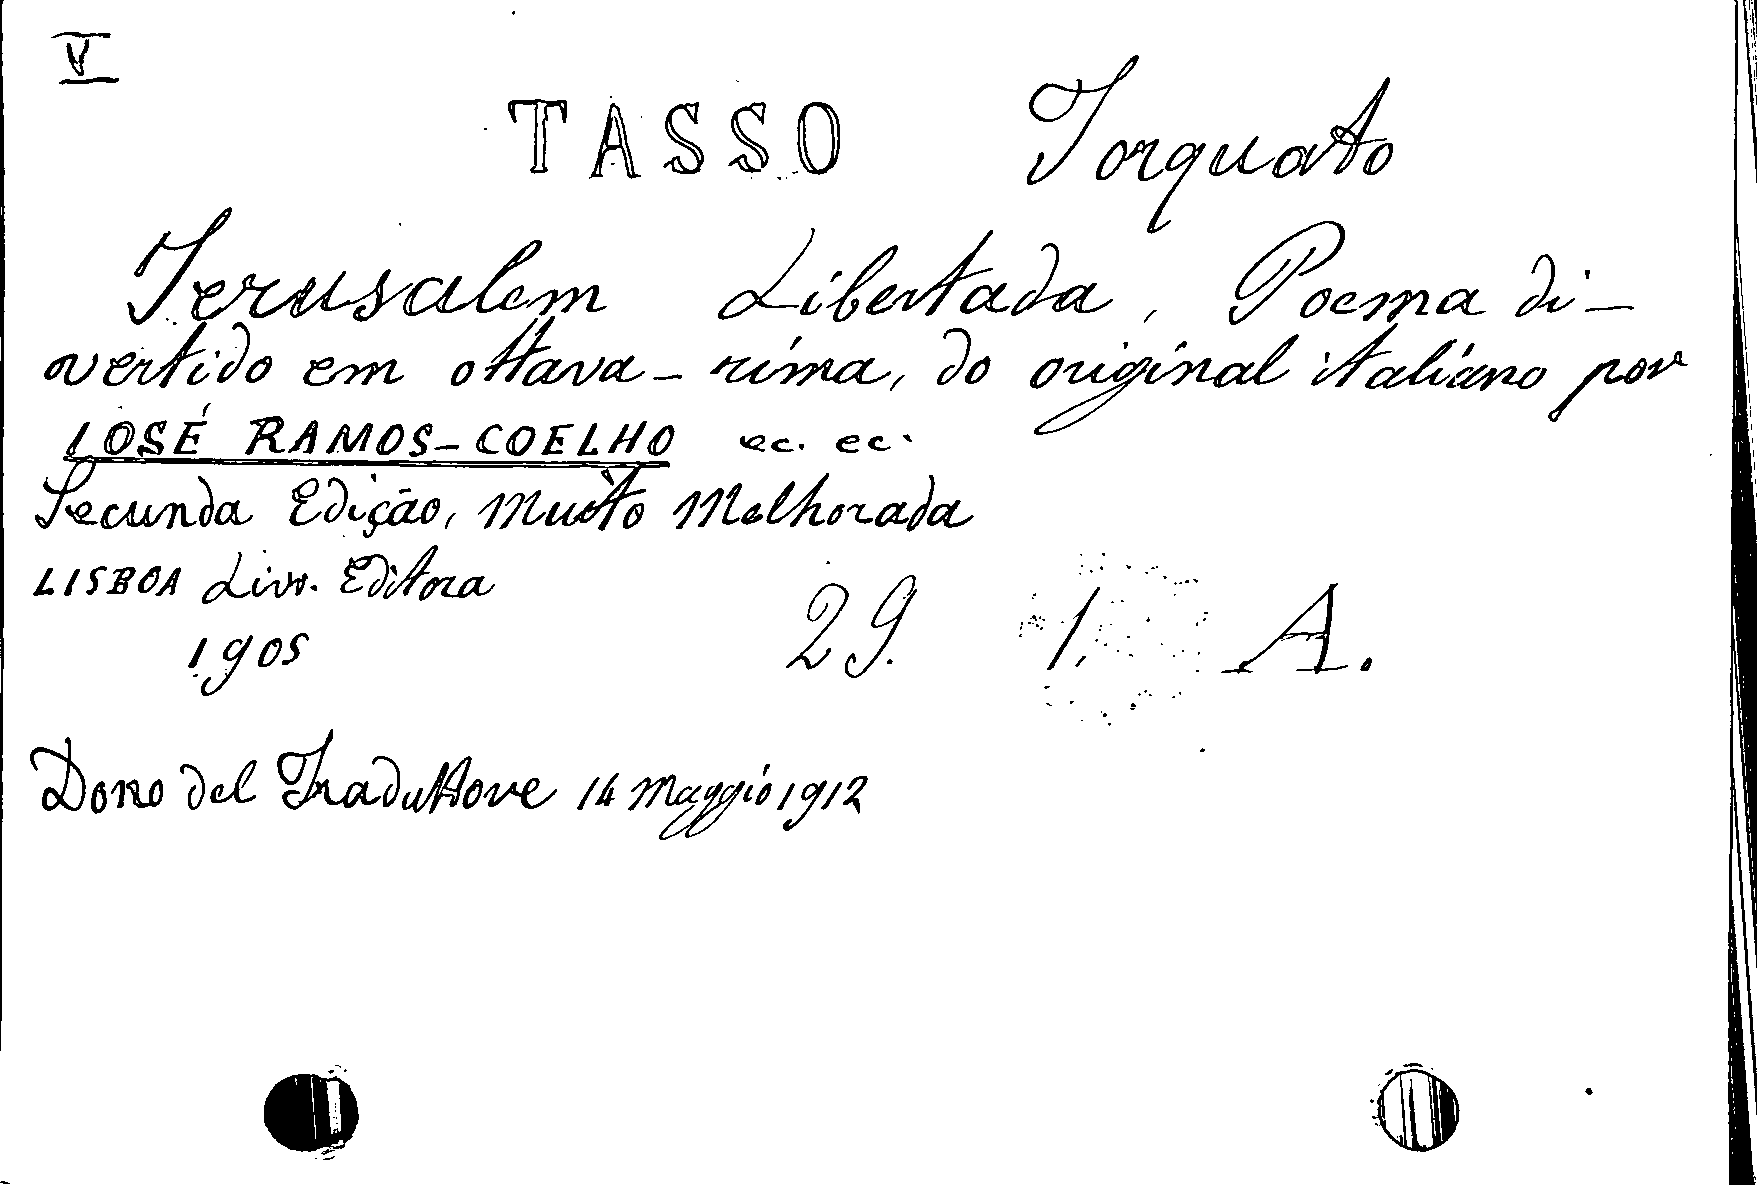 V
TASSO Torquato
Jerusalem Libertada, Poema di-
vertido em ottava-rima, do original italiano por
JOSÉ RAMOS-COELHO ec. ec.
Secunda Edição, Muito Melhorada
LISBOA Livr. Editora
1905 29. 1. A.
Dono del Traduttore 14 Maggio 1912